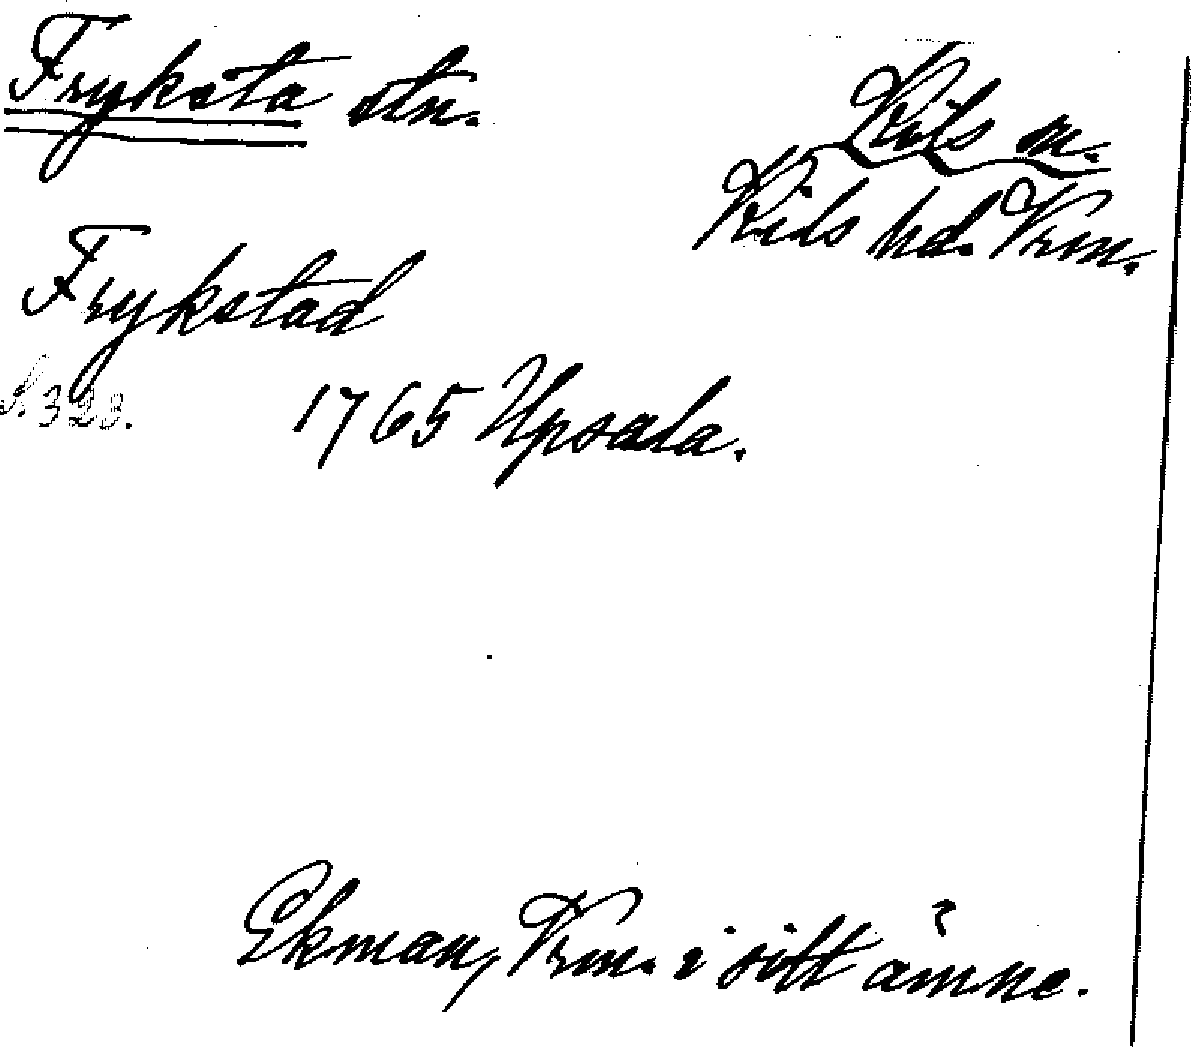 Fryksta stn.
Kils sn.
Kils hd. Vrm.
Frykstad
S. 328.
1765 Upsala.
Ekman, Vrm. i sitt ämne.